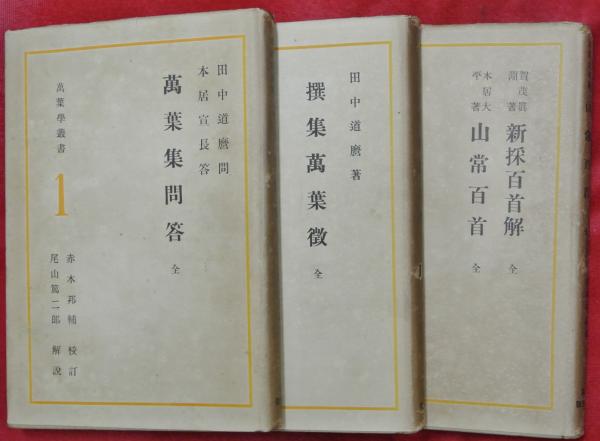 田中道麿問
本居宣長答
萬葉集問答 全
萬葉學叢書
1
赤木邦輔 校訂
尾山篤二郎 解説
田中道麿著
撰集萬葉徴 全
賀茂眞淵著
新採百首解 全
本居大平著
山常百首 全